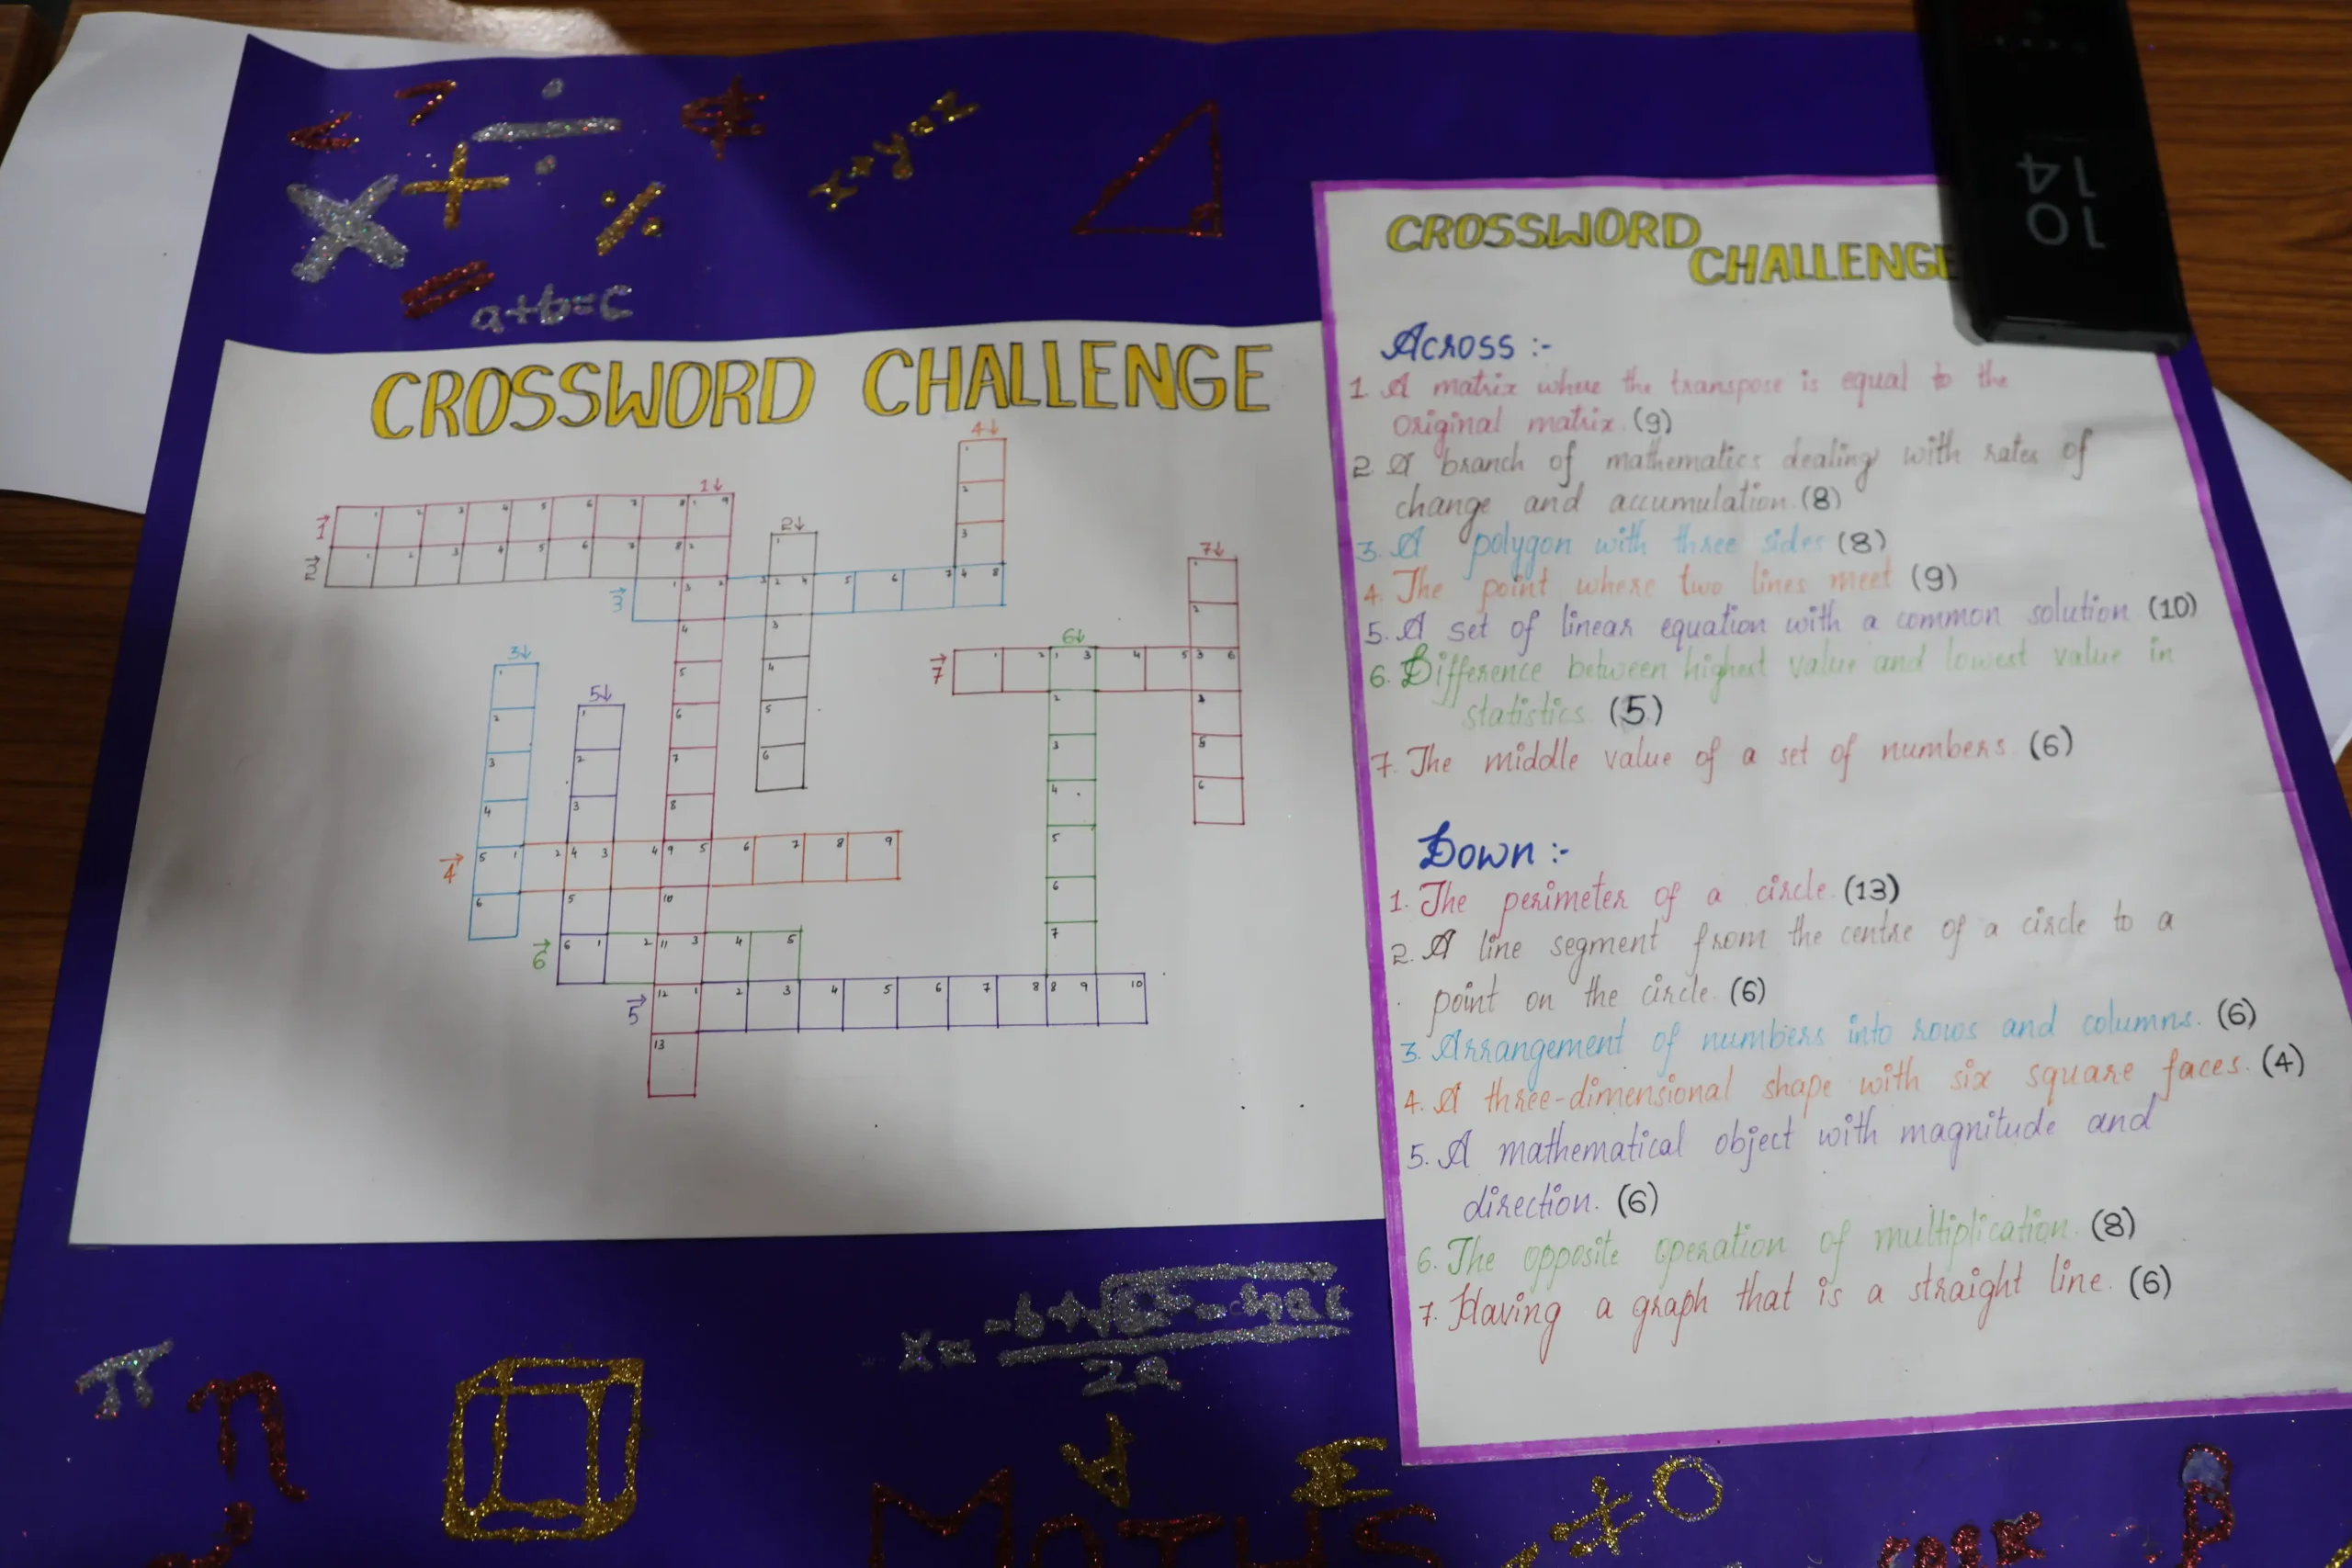 < >
÷
x+y=z
× + %
=
a+b=c
CROSSWORD CHALLENGE
4↓
1↓
1→
2↓
2→
7↓
3→
6↓
3↓
7→
5↓
4→
6→
5→
CROSSWORD
CHALLENGE
Across :-
1. A matrix where the transpose is equal to the
original matrix. (9)
2. A branch of mathematics dealing with rates of
change and accumulation. (8)
3. A polygon with three sides (8)
4. The point where two lines meet (9)
5. A set of linear equation with a common solution (10)
6. Difference between highest value and lowest value in
statistics. (5)
7. The middle value of a set of numbers. (6)
Down :-
1. The perimeter of a circle. (13)
2. A line segment from the centre of a circle to a
point on the circle. (6)
3. Arrangement of numbers into rows and columns. (6)
4. A three-dimensional shape with six square faces. (4)
5. A mathematical object with magnitude and
direction. (6)
6. The opposite operation of multiplication. (8)
7. Having a graph that is a straight line. (6)
10
14
x =
2a
π η
∀ Σ
MATHS
≠ 0
β